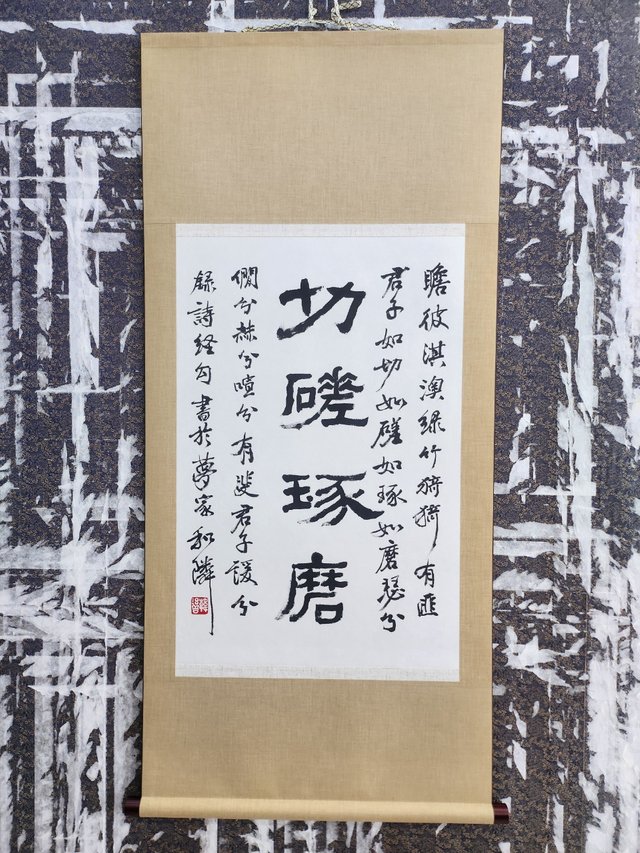 瞻彼淇澳绿竹猗猗有匪
君子如切如磋如琢如磨瑟兮
切磋琢磨
僩兮赫兮喧兮有斐君子谖兮
録詩经句書於夢家和隣